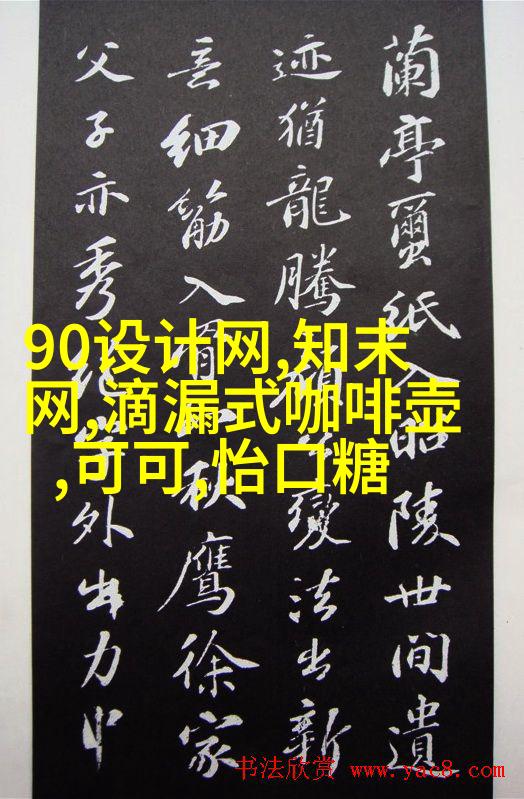 蘭亭蠒紙入昭陵世間遺
迹猶龍騰顏公變法出新
意細筋入骨如秋鷹徐家
父子亦秀絕字外出力中
90设计网,知末
网,滴漏式咖啡壶
,可可,怡口糖
书法欣赏 www.yac8.com